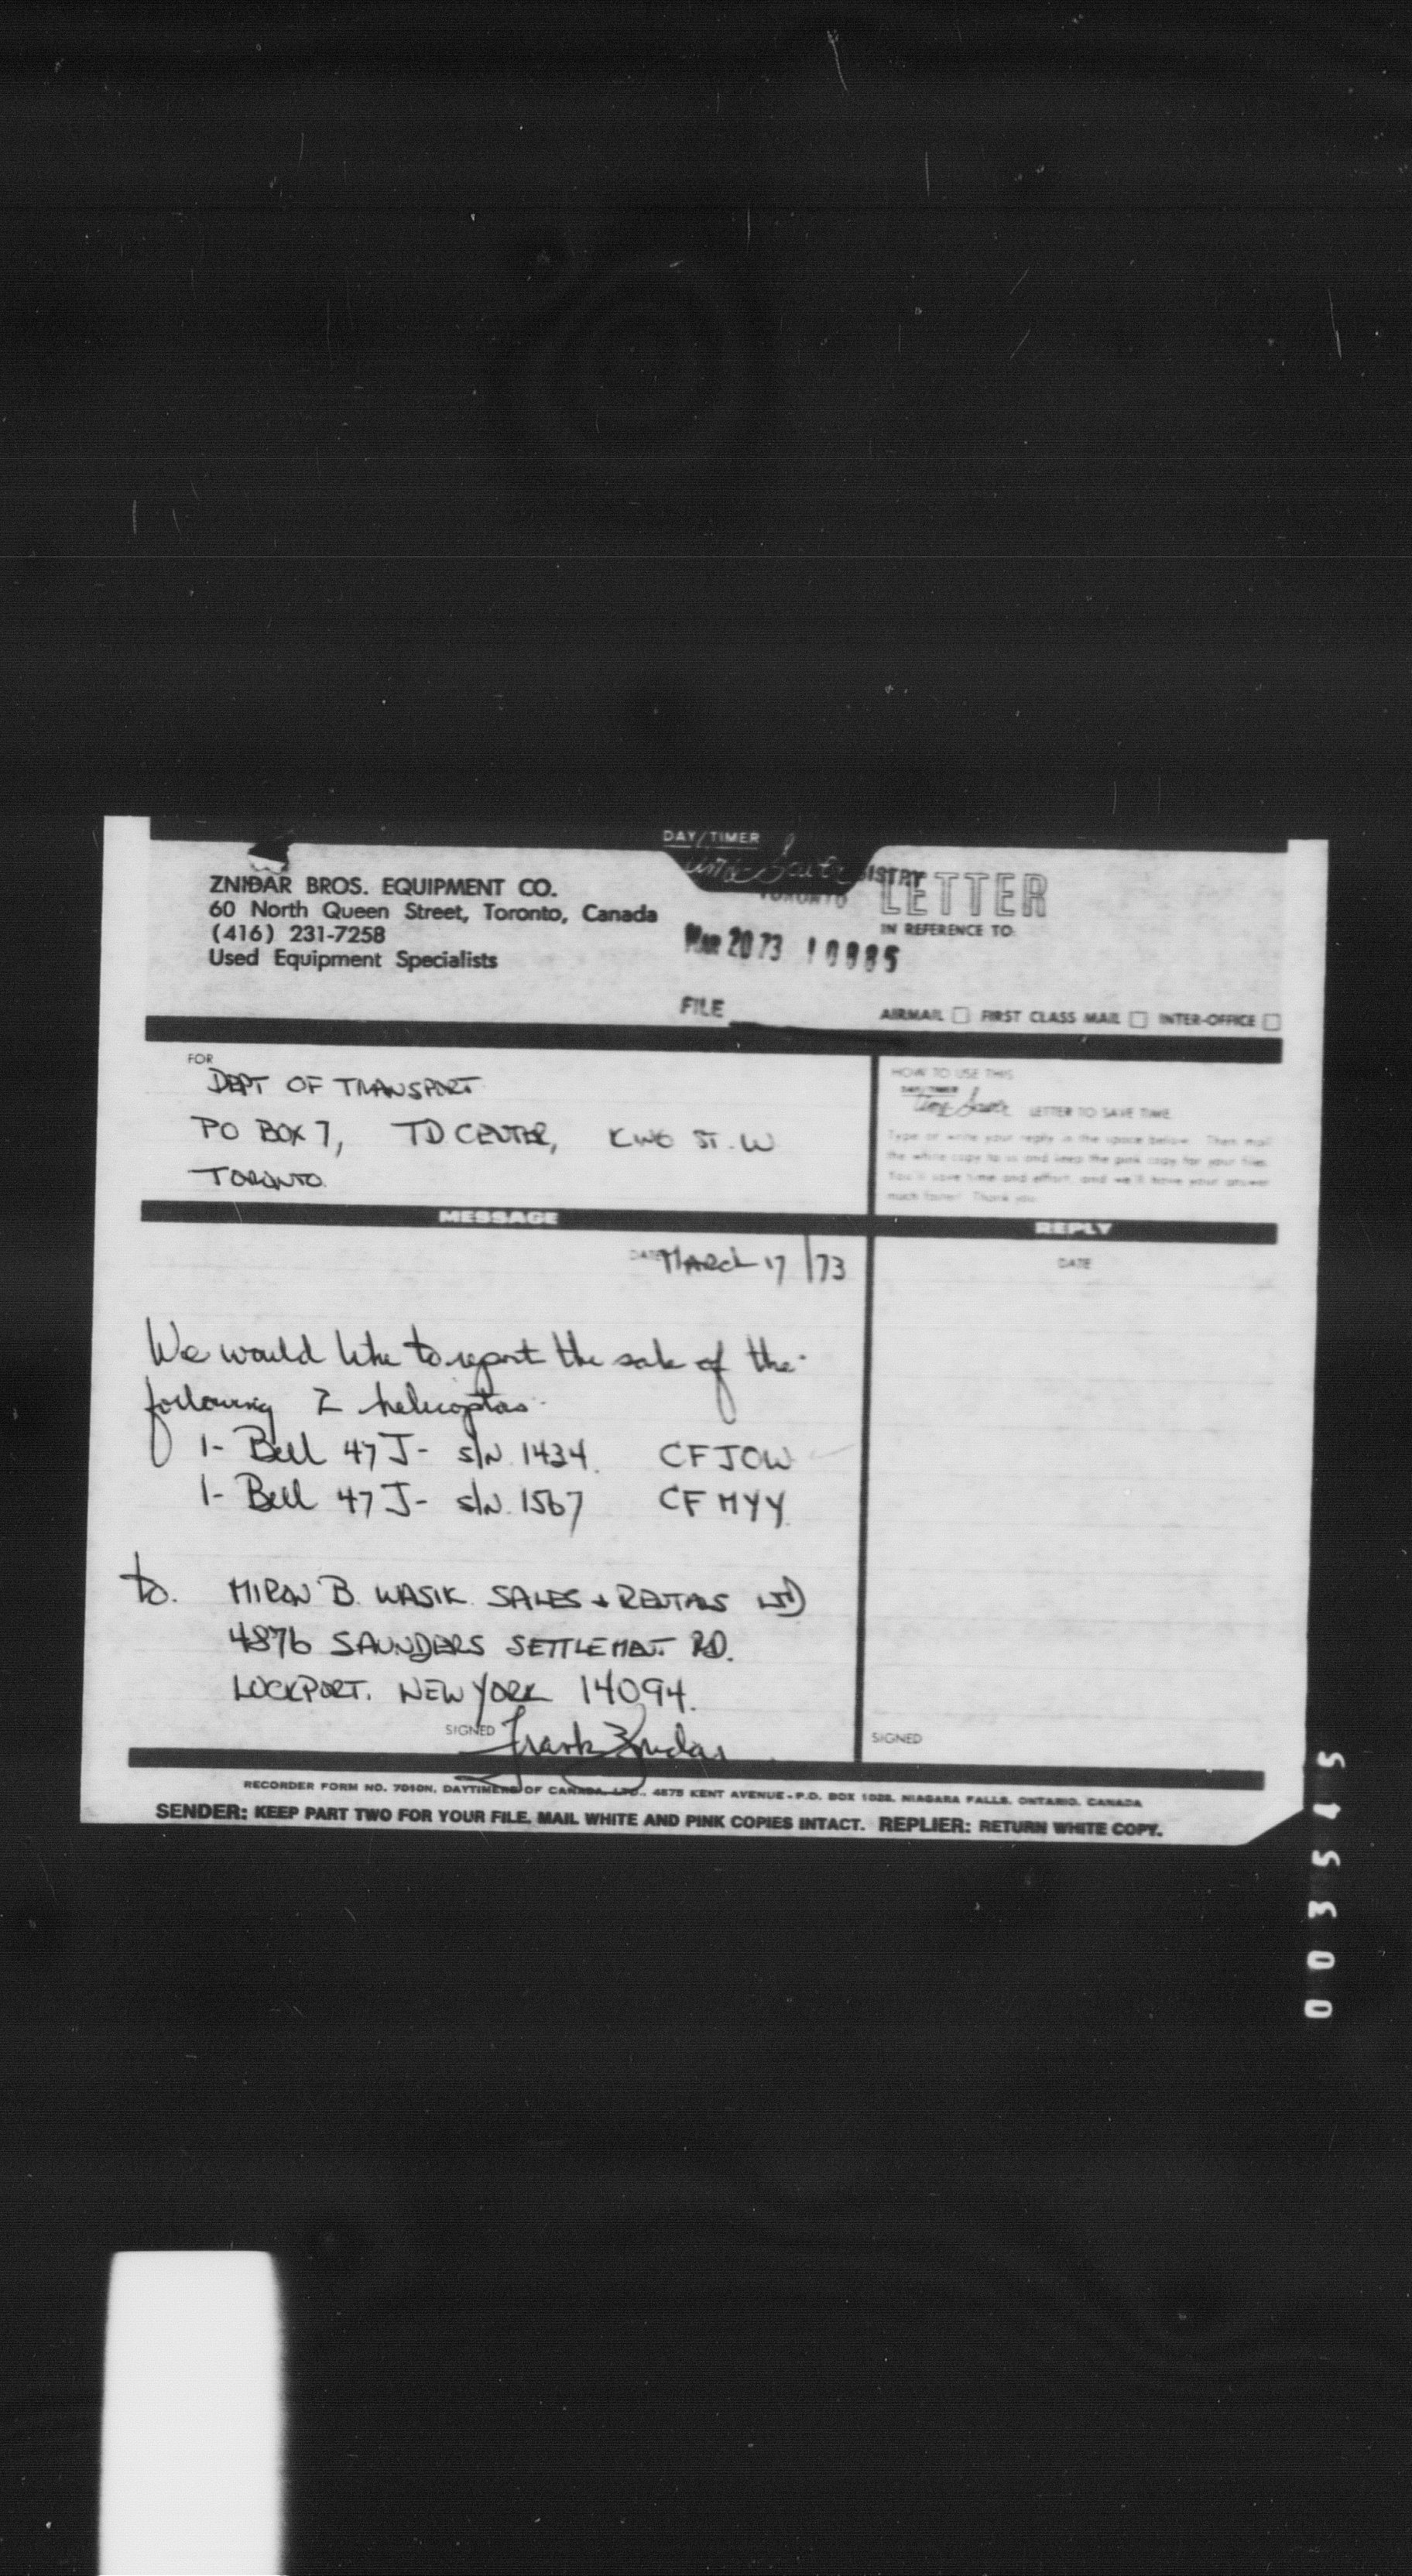 DAY/TIMER
Time Saver
ZNIDAR BROS. EQUIPMENT CO.
60 North Queen Street, Toronto, Canada
(416) 231-7258
Used Equipment Specialists
TORONTO
MAR 20 73
LETTER
IN REFERENCE TO:
FILE
AIRMAIL FIRST CLASS MAIL INTER-OFFICE
FOR
DEPT OF TRANSPORT
PO BOX 7, TD CENTER, KING ST. W
TORONTO.
HOW TO USE THIS
DAY/TIMER
Time Saver LETTER TO SAVE TIME
Type or write your reply in the space below. Then mail
the white copy to us and keep the pink copy for your files.
You'll save time and effort, and we'll have your answer
much faster! Thank you.
MESSAGE
REPLY
DATE MARCH 17/73
DATE
We would like to report the sale of the
following 2 helicopters.
1- Bell 47 J- s/N. 1434. CF JOW
1- Bell 47 J- s/N. 1567 CF MYY.
to. MIRON B. WASIK SALES + RENTALS LTD
4876 SAUNDERS SETTLEMENT RD.
LOCKPORT. NEW YORK 14094.
SIGNED Frank Znidar
SIGNED
RECORDER FORM NO. 7010N, DAYTIMERS OF CANADA, LTD., 4675 KENT AVENUE - P.O. BOX 1028, NIAGARA FALLS, ONTARIO, CANADA
SENDER: KEEP PART TWO FOR YOUR FILE. MAIL WHITE AND PINK COPIES INTACT. REPLIER: RETURN WHITE COPY.
003545